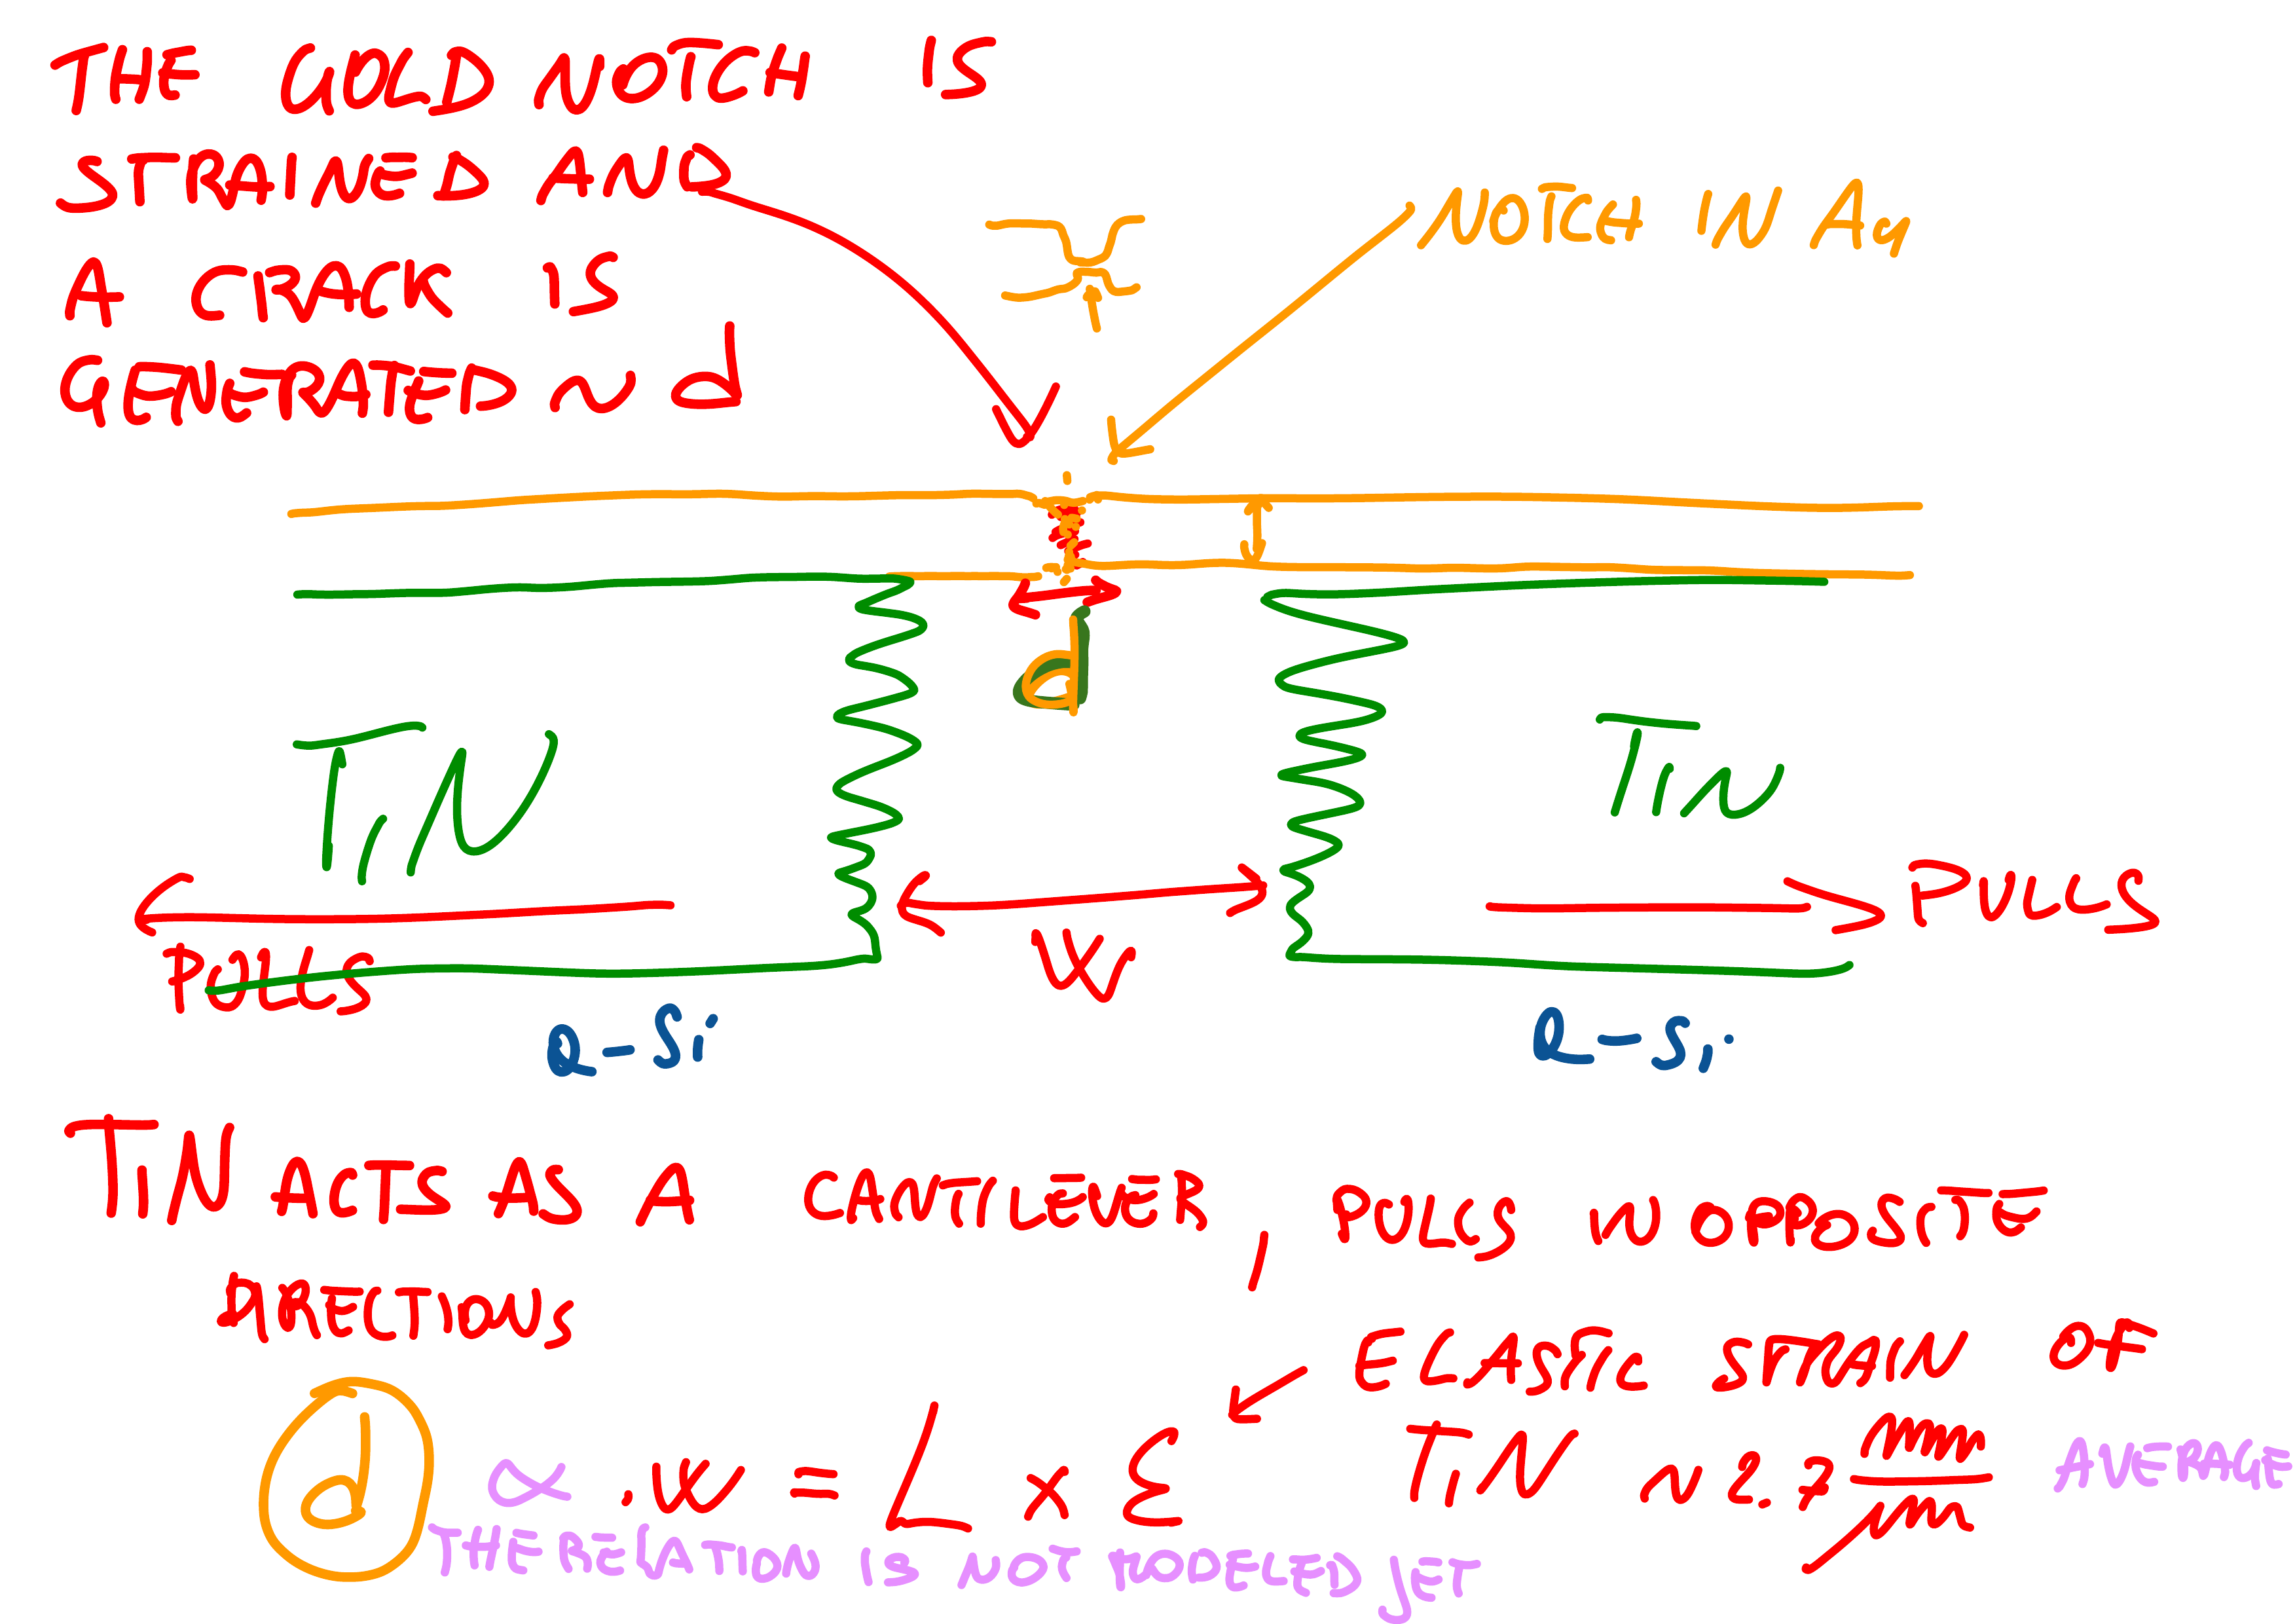 THE GOLD NOTCH IS
STRAINED AND
A CRACK IS
GENERATED ~ d
NOTCH IN Au
d
TiN
TiN
PULLS
W
PULLS
Q-Si
Q-Si
TiN ACTS AS A CANTILEVER, PULLS IN OPPOSITE
DIRECTIONS
ELASTIC STRAIN OF
TiN ~ 2.7 nm/μm AVERAGE
d ∝ . W = L × ε
THE RELATION IS NOT MODELED YET